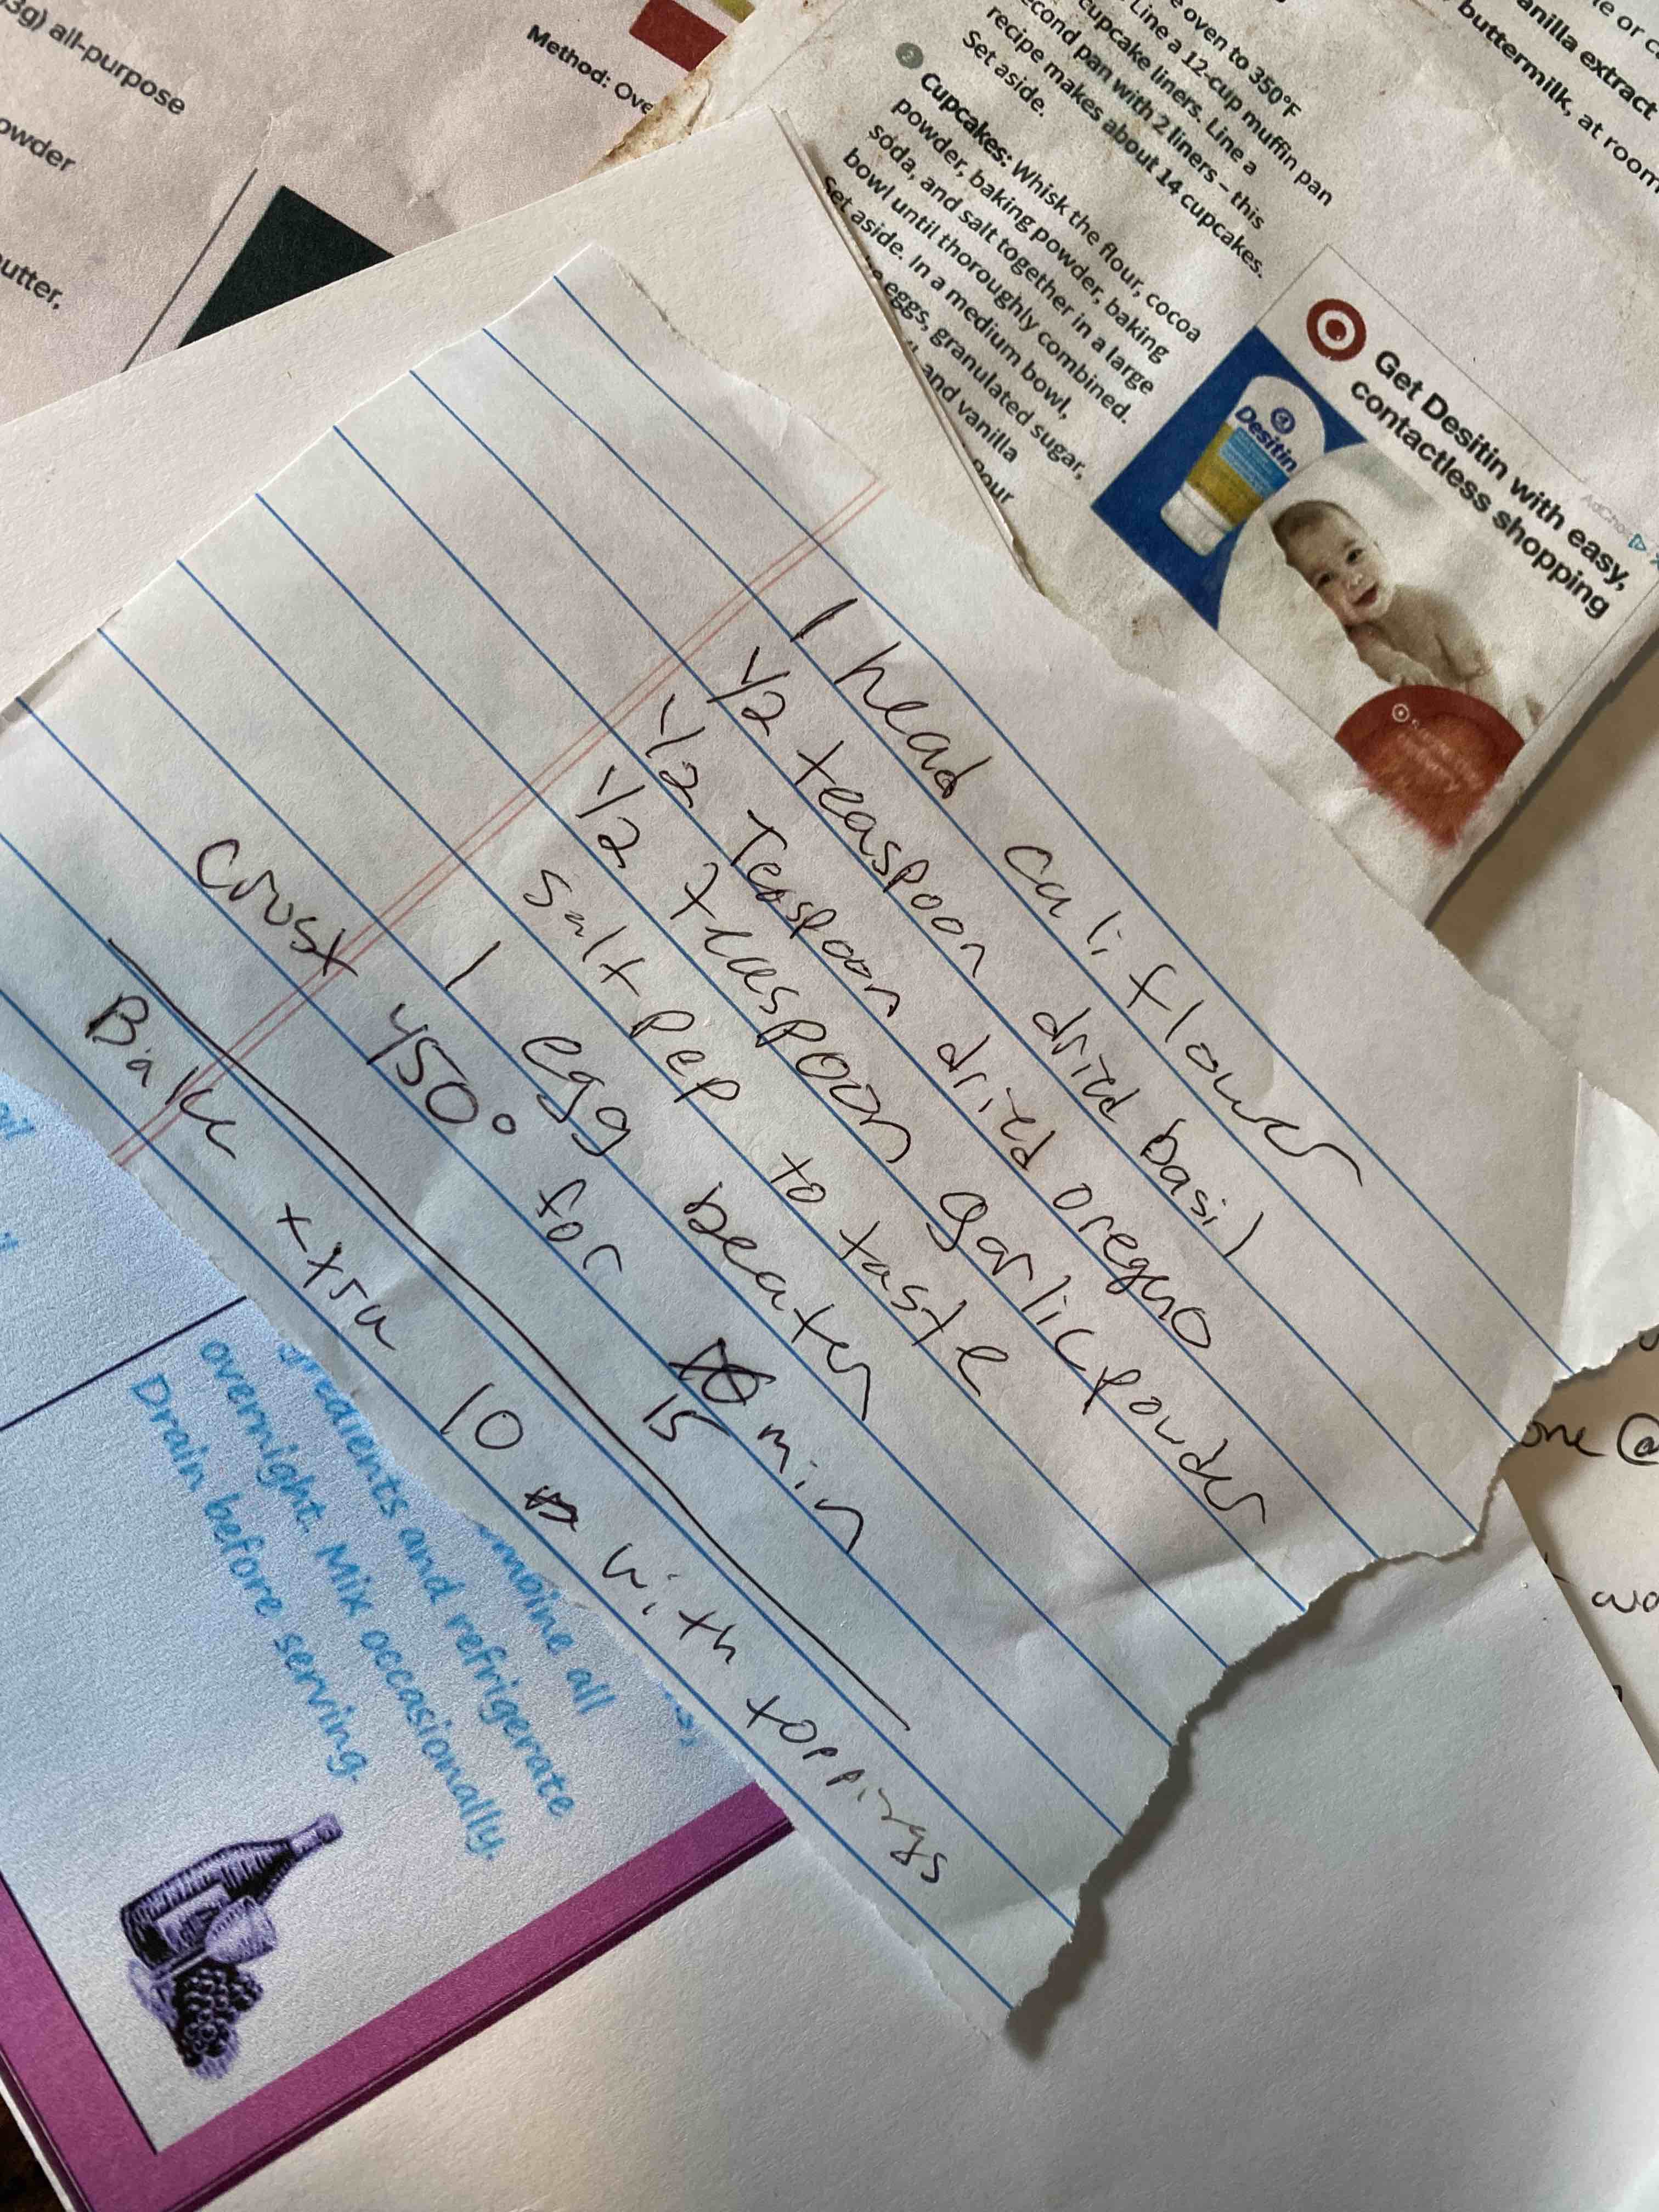 3g) all-purpose
owder
utter,
Method: Ove
e oven to 350°F
Line a 12-cup muffin pan
cupcake liners. Line a
econd pan with 2 liners – this
recipe makes about 14 cupcakes.
Set aside.
2 Cupcakes: Whisk the flour, cocoa
powder, baking powder, baking
soda, and salt together in a large
bowl until thoroughly combined.
Set aside. In a medium bowl,
eggs, granulated sugar,
and vanilla
Pour
e or c
anilla extract
buttermilk, at room
Get Desitin with easy,
contactless shopping
AdChoic
Desitin
1 head califlower
1/2 teaspoon dried basil
1/2 Teaspoon dried oregno
1/2 teaspoon garlic powder
salt pep to taste
1 egg beaten
Crust 450° for 15 min
Bake xtra 10 with toppings
ombine all
gredients and refrigerate
overnight. Mix occasionally.
Drain before serving.
one @
wo